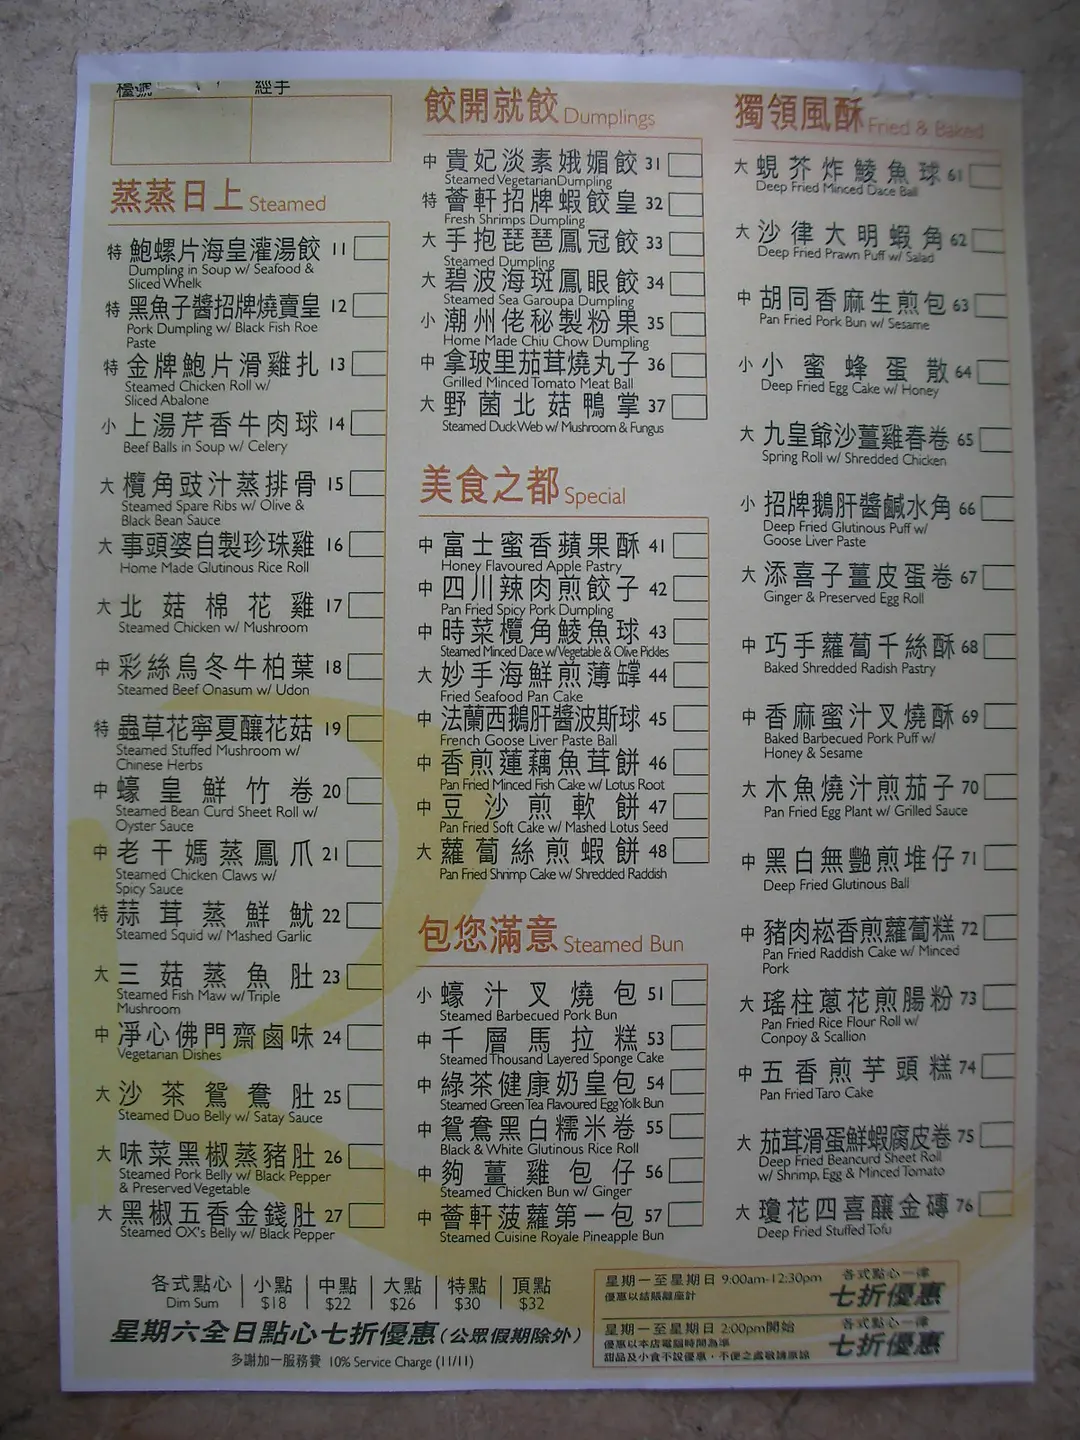 檯號
經手
蒸蒸日上 Steamed
特 鮑螺片海皇灌湯餃 11
Dumpling in Soup w/ Seafood &
Sliced Whelk
特 黑魚子醬招牌燒賣皇 12
Pork Dumpling w/ Black Fish Roe
Paste
特 金牌鮑片滑雞扎 13
Steamed Chicken Roll w/
Sliced Abalone
小 上湯芹香牛肉球 14
Beef Balls in Soup w/ Celery
大 欖角豉汁蒸排骨 15
Steamed Spare Ribs w/ Olive &
Black Bean Sauce
大 事頭婆自製珍珠雞 16
Home Made Glutinous Rice Roll
大 北菇棉花雞 17
Steamed Chicken w/ Mushroom
中 彩絲烏冬牛柏葉 18
Steamed Beef Onasum w/ Udon
特 蟲草花寧夏釀花菇 19
Steamed Stuffed Mushroom w/
Chinese Herbs
中 蠔皇鮮竹卷 20
Steamed Bean Curd Sheet Roll w/
Oyster Sauce
中 老干媽蒸鳳爪 21
Steamed Chicken Claws w/
Spicy Sauce
特 蒜茸蒸鮮魷 22
Steamed Squid w/ Mashed Garlic
大 三菇蒸魚肚 23
Steamed Fish Maw w/ Triple
Mushroom
中 凈心佛門齋鹵味 24
Vegetarian Dishes
大 沙茶鴛鴦肚 25
Steamed Duo Belly w/ Satay Sauce
大 味菜黑椒蒸豬肚 26
Steamed Pork Belly w/ Black Pepper
& Preserved Vegetable
大 黑椒五香金錢肚 27
Steamed OX's Belly w/ Black Pepper
餃開就餃 Dumplings
中 貴妃淡素娥媚餃 31
Steamed Vegetarian Dumpling
特 薈軒招牌蝦餃皇 32
Fresh Shrimps Dumpling
大 手抱琵琶鳳冠餃 33
Steamed Dumpling
大 碧波海斑鳳眼餃 34
Steamed Sea Garoupa Dumpling
小 潮州佬秘製粉果 35
Home Made Chiu Chow Dumpling
中 拿玻里茄茸燒丸子 36
Grilled Minced Tomato Meat Ball
大 野菌北菇鴨掌 37
Steamed Duck Web w/ Mushroom & Fungus
美食之都 Special
中 富士蜜香蘋果酥 41
Honey Flavoured Apple Pastry
中 四川辣肉煎餃子 42
Pan Fried Spicy Pork Dumpling
中 時菜欖角鯪魚球 43
Steamed Minced Dace w/ Vegetable & Olive Pickles
大 妙手海鮮煎薄罉 44
Fried Seafood Pan Cake
中 法蘭西鵝肝醬波斯球 45
French Goose Liver Paste Ball
中 香煎蓮藕魚茸餅 46
Pan Fried Minced Fish Cake w/ Lotus Root
中 豆沙煎軟餅 47
Pan Fried Soft Cake w/ Mashed Lotus Seed
大 蘿蔔絲煎蝦餅 48
Pan Fried Shrimp Cake w/ Shredded Raddish
包您滿意 Steamed Bun
小 蠔汁叉燒包 51
Steamed Barbecued Pork Bun
中 千層馬拉糕 53
Steamed Thousand Layered Sponge Cake
中 綠茶健康奶皇包 54
Steamed Green Tea Flavoured Egg Yolk Bun
中 鴛鴦黑白糯米卷 55
Black & White Glutinous Rice Roll
中 夠薑雞包仔 56
Steamed Chicken Bun w/ Ginger
中 薈軒菠蘿第一包 57
Steamed Cuisine Royale Pineapple Bun
獨領風酥 Fried & Baked
大 蜆芥炸鯪魚球 61
Deep Fried Minced Dace Ball
大 沙律大明蝦角 62
Deep Fried Prawn Puff w/ Salad
中 胡同香麻生煎包 63
Pan Fried Pork Bun w/ Sesame
小 小蜜蜂蛋散 64
Deep Fried Egg Cake w/ Honey
大 九皇爺沙薑雞春卷 65
Spring Roll w/ Shredded Chicken
小 招牌鵝肝醬鹹水角 66
Deep Fried Glutinous Puff w/
Goose Liver Paste
大 添喜子薑皮蛋卷 67
Ginger & Preserved Egg Roll
中 巧手蘿蔔千絲酥 68
Baked Shredded Radish Pastry
中 香麻蜜汁叉燒酥 69
Baked Barbecued Pork Puff w/
Honey & Sesame
大 木魚燒汁煎茄子 70
Pan Fried Egg Plant w/ Grilled Sauce
中 黑白無艷煎堆仔 71
Deep Fried Glutinous Ball
中 豬肉崧香煎蘿蔔糕 72
Pan Fried Raddish Cake w/ Minced
Pork
大 瑤柱蔥花煎腸粉 73
Pan Fried Rice Flour Roll w/
Conpoy & Scallion
中 五香煎芋頭糕 74
Pan Fried Taro Cake
大 茄茸滑蛋鮮蝦腐皮卷 75
Deep Fried Beancurd Sheet Roll
w/ Shrimp, Egg & Minced Tomato
大 瓊花四喜釀金磚 76
Deep Fried Stuffed Tofu
各式點心 小點 中點 大點 特點 頂點
Dim Sum $18 $22 $26 $30 $32
星期六全日點心七折優惠(公眾假期除外)
多謝加一服務費 10% Service Charge (11/11)
星期一至星期日 9:00am-12:30pm 各式點心一律
優惠以結賬離座計 七折優惠
星期一至星期日 2:00pm開始 各式點心一律
優惠以本店電腦時間為準 七折優惠
甜品及小食不設優惠，不便之處敬請原諒